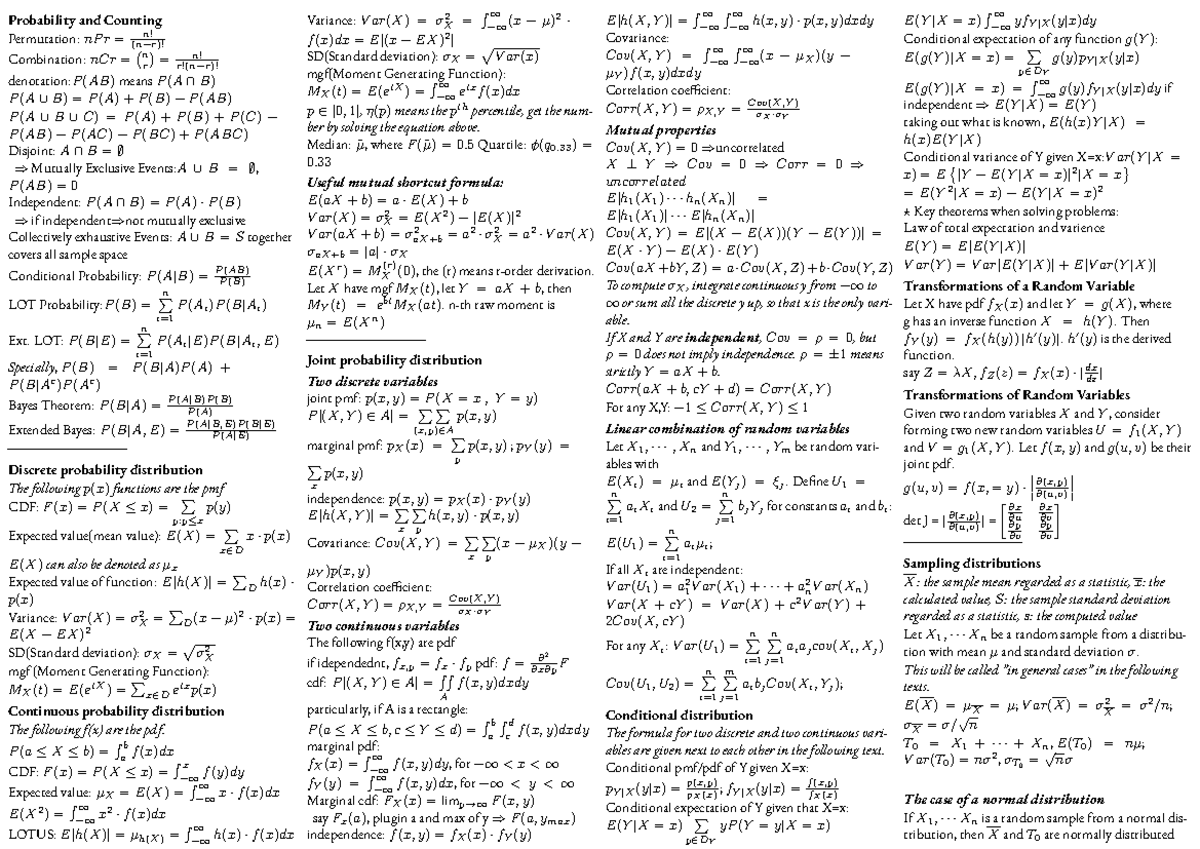 Probability and Counting
Permutation: nPr = n!/(n−r)!
Combination: nCr = (n r) = n!/(r!(n−r)!)
denotation: P(AB) means P(A ∩ B)
P(A ∪ B) = P(A) + P(B) − P(AB)
P(A ∪ B ∪ C) = P(A) + P(B) + P(C) −
P(AB) − P(AC) − P(BC) + P(ABC)
Disjoint: A ∩ B = ∅
⇒ Mutually Exclusive Events:A ∪ B = ∅,
P(AB) = 0
Independent: P(A ∩ B) = P(A) · P(B)
⇒ if independent⇒not mutually exclusive
Collectively exhaustive Events: A ∪ B = S together
covers all sample space
Conditional Probability: P(A|B) = P(AB)/P(B)
LOT Probability: P(B) = ∑_{i=1}^n P(A_i)P(B|A_i)
Ext. LOT: P(B|E) = ∑_{i=1}^n P(A_i|E)P(B|A_i, E)
Specially, P(B) = P(B|A)P(A) +
P(B|A^c)P(A^c)
Bayes Theorem: P(B|A) = P(A|B)P(B)/P(A)
Extended Bayes: P(B|A, E) = P(A|B,E)P(B|E)/P(A|E)
Discrete probability distribution
The following p(x) functions are the pmf
CDF: F(x) = P(X ≤ x) = ∑_{y:y≤x} p(y)
Expected value(mean value): E(X) = ∑_{x∈D} x · p(x)
E(X) can also be denoted as μ_x
Expected value of function: E[h(X)] = ∑_D h(x) ·
p(x)
Variance: Var(X) = σ_X^2 = ∑_D(x − μ)^2 · p(x) =
E(X − EX)^2
SD(Standard deviation): σ_X = √σ_X^2
mgf(Moment Generating Function):
M_X(t) = E(e^{tX}) = ∑_{x∈D} e^{tx}p(x)
Continuous probability distribution
The following f(x) are the pdf.
P(a ≤ X ≤ b) = ∫_a^b f(x)dx
CDF: F(x) = P(X ≤ x) = ∫_{−∞}^x f(y)dy
Expected value: μ_X = E(X) = ∫_{−∞}^∞ x · f(x)dx
E(X^2) = ∫_{−∞}^∞ x^2 · f(x)dx
LOTUS: E[h(X)] = μ_{h(X)} = ∫_{−∞}^∞ h(x) · f(x)dx
Variance: Var(X) = σ_X^2 = ∫_{−∞}^∞(x − μ)^2 ·
f(x)dx = E[(x − EX)^2]
SD(Standard deviation): σ_X = √Var(x)
mgf(Moment Generating Function):
M_X(t) = E(e^{tX}) = ∫_{−∞}^∞ e^{tx}f(x)dx
p ∈ [0, 1], η(p) means the p^{th} percentile, get the num-
ber by solving the equation above.
Median: μ̃, where F(μ̃) = 0.5 Quartile: ϕ(q_{0.33}) =
0.33
Useful mutual shortcut formula:
E(aX + b) = a · E(X) + b
Var(X) = σ_X^2 = E(X^2) − [E(X)]^2
Var(aX + b) = σ_{aX+b}^2 = a^2 · σ_X^2 = a^2 · Var(X)
σ_{aX+b} = |a| · σ_X
E(X^r) = M_X^{(r)}(0), the (r) means r-order derivation.
Let X have mgf M_X(t), let Y = aX + b, then
M_Y(t) = e^{bt}M_X(at). n-th raw moment is
μ_n = E(X^n)
Joint probability distribution
Two discrete variables
joint pmf: p(x, y) = P(X = x , Y = y)
P[(X, Y) ∈ A] = ∑∑_{(x,y)∈A} p(x, y)
marginal pmf: p_X(x) = ∑_y p(x, y) ; p_Y(y) =
∑_x p(x, y)
independence: p(x, y) = p_X(x) · p_Y(y)
E[h(X, Y)] = ∑_x∑_y h(x, y) · p(x, y)
Covariance: Cov(X, Y) = ∑_x∑_y(x − μ_X)(y −
μ_Y)p(x, y)
Correlation coefficient:
Corr(X, Y) = ρ_{X,Y} = Cov(X,Y)/(σ_X·σ_Y)
Two continuous variables
The following f(x,y) are pdf
if idependednt, f_{x,y} = f_x · f_y pdf: f = ∂^2/∂x∂y F
cdf: P[(X, Y) ∈ A] = ∬_A f(x, y)dxdy
particularly, if A is a rectangle:
P(a ≤ X ≤ b, c ≤ Y ≤ d) = ∫_a^b ∫_c^d f(x, y)dxdy
marginal pdf:
f_X(x) = ∫_{−∞}^∞ f(x, y)dy, for −∞ < x < ∞
f_Y(y) = ∫_{−∞}^∞ f(x, y)dx, for −∞ < y < ∞
Marginal cdf: F_X(x) = lim_{y→∞} F(x, y)
say F_x(a), plugin a and max of y ⇒ F(a, y_{max})
independence: f(x, y) = f_X(x) · f_Y(y)
E[h(X, Y)] = ∫_{−∞}^∞ ∫_{−∞}^∞ h(x, y) · p(x, y)dxdy
Covariance:
Cov(X, Y) = ∫_{−∞}^∞ ∫_{−∞}^∞(x − μ_X)(y −
μ_Y)f(x, y)dxdy
Correlation coefficient:
Corr(X, Y) = ρ_{X,Y} = Cov(X,Y)/(σ_X·σ_Y)
Mutual properties
Cov(X, Y) = 0 ⇒uncorrelated
X ⊥ Y ⇒ Cov = 0 ⇒ Corr = 0 ⇒
uncorrelated
E[h_1(X_1) · · · h_n(X_n)] =
E[h_1(X_1)] · · · E[h_n(X_n)]
Cov(X, Y) = E[(X − E(X))(Y − E(Y))] =
E(X · Y) − E(X) · E(Y)
Cov(aX +bY, Z) = a·Cov(X, Z)+b·Cov(Y, Z)
To compute σ_X, integrate continuous y from −∞ to
∞ or sum all the discrete y up, so that x is the only vari-
able.
If X and Y are independent, Cov = ρ = 0, but
ρ = 0 does not imply independence. ρ = ±1 means
strictly Y = aX + b.
Corr(aX + b, cY + d) = Corr(X, Y)
For any X,Y: −1 ≤ Corr(X, Y) ≤ 1
Linear combination of random variables
Let X_1, · · · , X_n and Y_1, · · · , Y_m be random vari-
ables with
E(X_i) = μ_i and E(Y_j) = ξ_j. Define U_1 =
∑_{i=1}^n a_iX_i and U_2 = ∑_{j=1}^n b_jY_j for constants a_i and b_i:
E(U_1) = ∑_{i=1}^n a_iμ_i;
If all X_i are independent:
Var(U_1) = a_1^2Var(X_1) + · · · + a_n^2Var(X_n)
Var(X + cY) = Var(X) + c^2Var(Y) +
2Cov(X, cY)
For any X_i: Var(U_1) = ∑_{i=1}^n ∑_{j=1}^n a_ia_jcov(X_i, X_j)
Cov(U_1, U_2) = ∑_{i=1}^n ∑_{j=1}^m a_ib_jCov(X_i, Y_j);
Conditional distribution
The formula for two discrete and two continuous vari-
ables are given next to each other in the following text.
Conditional pmf/pdf of Y given X=x:
p_{Y|X}(y|x) = p(x,y)/p_X(x); f_{Y|X}(y|x) = f(x,y)/f_X(x)
Conditional expectation of Y given that X=x:
E(Y|X = x) ∑_{y∈D_Y} yP(Y = y|X = x)
E(Y|X = x) ∫_{−∞}^∞ yf_{Y|X}(y|x)dy
Conditional expectation of any function g(Y):
E(g(Y)|X = x) = ∑_{y∈D_Y} g(y)p_{Y|X}(y|x)
E(g(Y)|X = x) = ∫_{−∞}^∞ g(y)f_{Y|X}(y|x)dy if
independent ⇒ E(Y|X) = E(Y)
taking out what is known, E(h(x)Y|X) =
h(x)E(Y|X)
Conditional variance of Y given X=x:Var(Y|X =
x) = E {[Y − E(Y|X = x)]^2|X = x}
= E(Y^2|X = x) − E(Y|X = x)^2
⋆ Key theorems when solving problems:
Law of total expectation and varience
E(Y) = E[E(Y|X)]
Var(Y) = Var[E(Y|X)] + E[Var(Y|X)]
Transformations of a Random Variable
Let X have pdf f_X(x) and let Y = g(X), where
g has an inverse function X = h(Y). Then
f_Y(y) = f_X(h(y))|h′(y)|. h′(y) is the derived
function.
say Z = λX, f_Z(z) = f_X(x) · |dx/dz|
Transformations of Random Variables
Given two random variables X and Y, consider
forming two new random variables U = f_1(X, Y)
and V = g_1(X, Y). Let f(x, y) and g(u, v) be their
joint pdf.
g(u, v) = f(x, = y) · |∂(x,y)/∂(u,v)|
det J = |∂(x,y)/∂(u,v)| = [∂x/∂u ∂x/∂v ; ∂y/∂u ∂y/∂v]
Sampling distributions
X̅: the sample mean regarded as a statistic, x̅: the
calculated value, S: the sample standard deviation
regarded as a statistic, s: the computed value
Let X_1, · · · X_n be a random sample from a distribu-
tion with mean μ and standard deviation σ.
This will be called "in general cases" in the following
texts.
E(X̅) = μ_X̅ = μ; Var(X̅) = σ_X̅^2 = σ^2/n;
σ_X̅ = σ/√n
T_0 = X_1 + · · · + X_n, E(T_0) = nμ;
Var(T_0) = nσ^2, σ_{T_0} = √nσ
The case of a normal distribution
If X_1, · · · X_n is a random sample from a normal dis-
tribution, then X̅ and T_0 are normally distributed